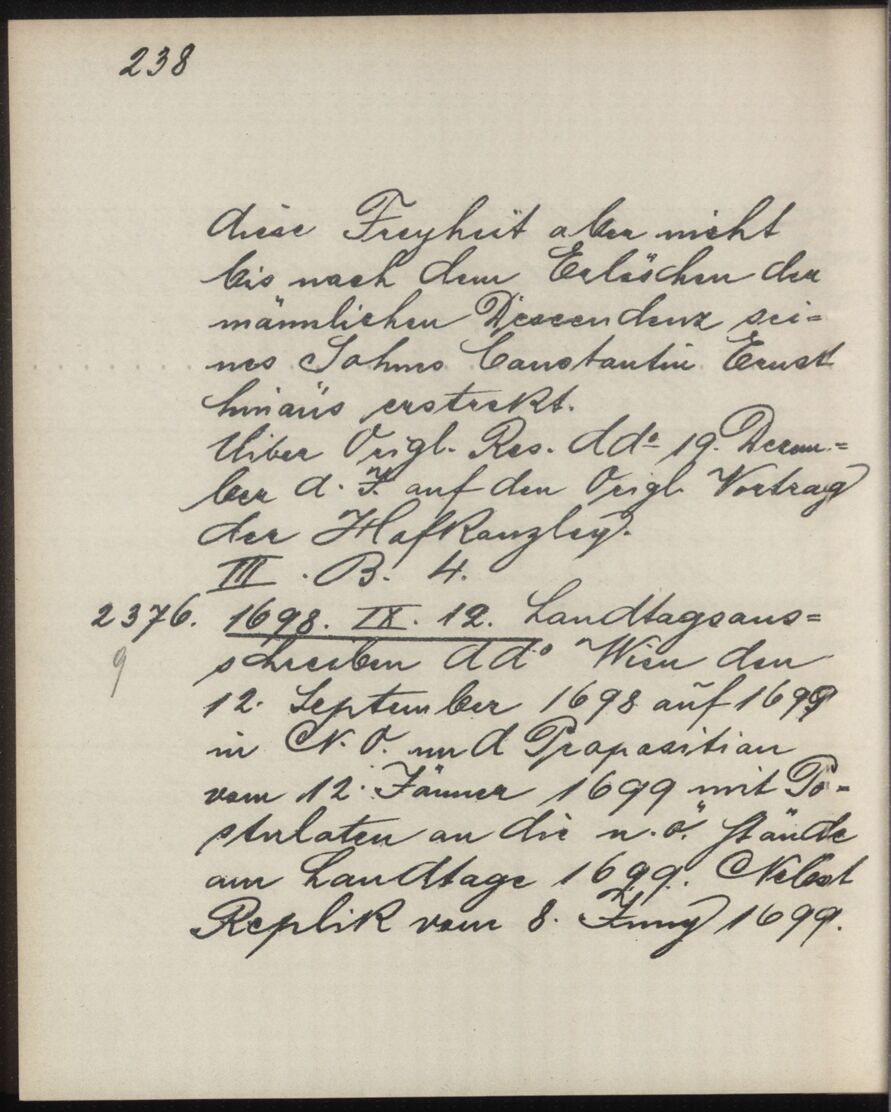 238
diese Freyheit aber nicht
bis nach dem Erlöschen der
männlichen Descendenz sei=
nes Sohnes Constantin Ernst
hinaus erstrekt.
Uiber Origl. Res. ddo 19. Dezem=
ber d. J. auf den Origl. Vortrag
der Hofkanzley.
III. B. 4.
2376. 1698. IX. 12. Landtagsaus=
9 schreiben ddo Wien den
12. September 1698 auf 1699
in N. O. und Proposition
vom 12. Jänner 1699 mit Po=
stulaten an die n. ö. Stände
am Landtage 1699. Nebst
Replik vom 8. Juny 1699.